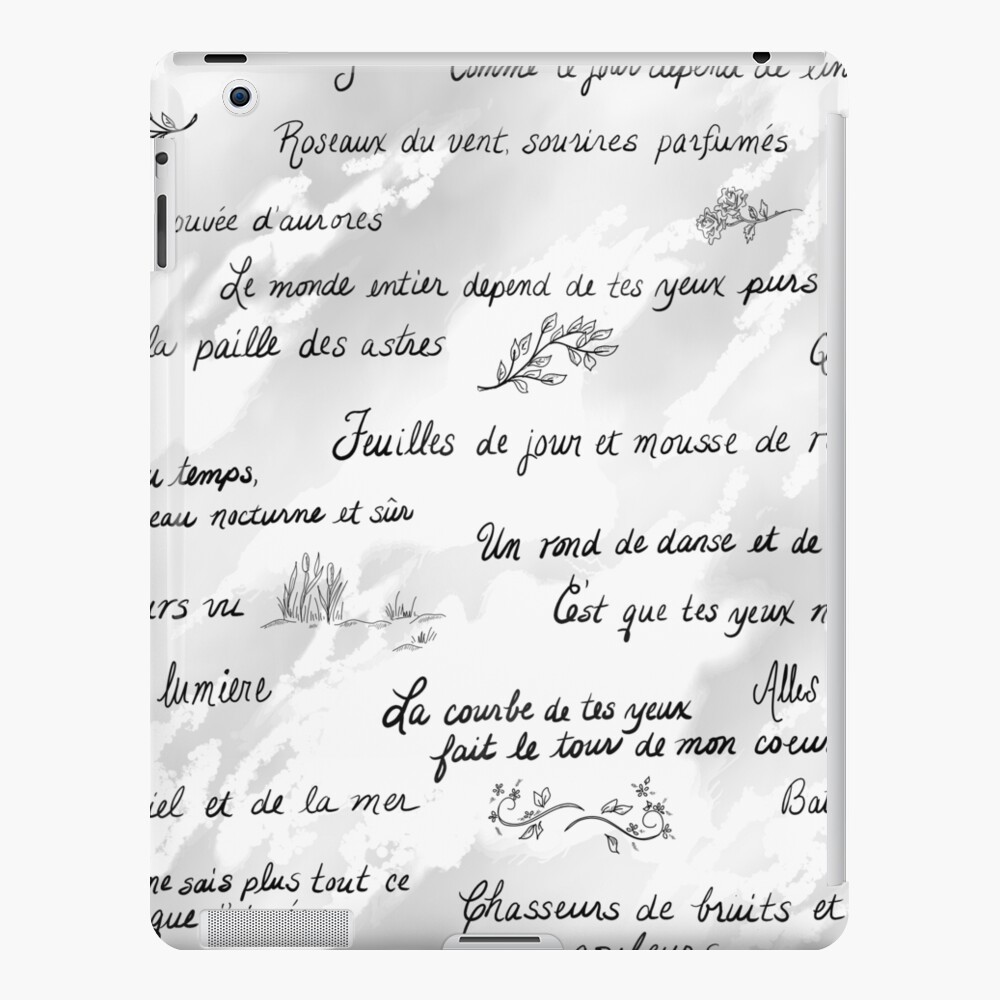 Comme le jour dépend de l'in
Roseaux du vent, sourires parfumés
ouvée d'aurores
Le monde entier depend de tes yeux purs
la paille des astres
Feuilles de jour et mousse de r
u temps,
eau nocturne et sûr
Un rond de danse et de
C'est que tes yeux n
urs vu
lumiere
Alles
La courbe de tes yeux
fait le tour de mon coeur
iel et de la mer
Bat
ne sais plus tout ce
que
Chasseurs de bruits et
couleurs